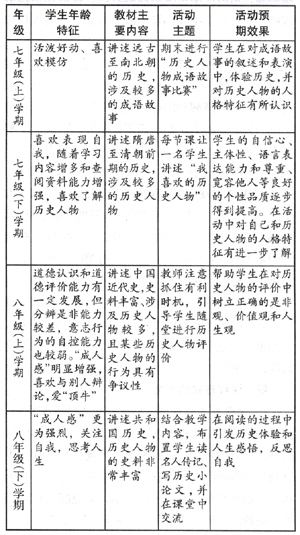 年级
学生年龄特征
教材主要内容
活动主题
活动预期效果
七年级(上)学期
活泼好动、喜
欢模仿
讲述远古
至南北朝
的历史,
涉及较多
的成语故
事
期末进行
“历史人
物成语故
事比赛”
学生在对成语故
事的叙述和表演
中,体验历史,并
对历史人物的人
格特征有所认识
七年级(下)学期
喜欢表现自
我,随着学习
内容增多和查
阅资料能力增
强,喜欢了解
历史人物
讲述隋唐
至清朝前
期的历史,
涉及较多
的历史人
物
每节课让
一名学生
讲述“我
喜欢的历
史人物”
学生的自信心、
主体性、语言表
达能力和尊重、
宽容他人等良好
的个性品质逐步
得到提高。在活
动中对自己和历
史人物的人格特
征有进一步了解
八年级(上)学期
道德认识和道
德评价能力有
一定发展,但
分辨是非能力
较差,意志行为
的自控能力也
比较弱。“成人
感”明显增强,
喜欢与别人辩
论,爱“顶牛”
讲述中国
近代史,史
料丰富、涉
及历史人
物较多,
且某些历
史人物的
行为具有
争议性
教师注意
抓住有利
时机,引
导学生随
堂进行历
史人物评
价
帮助学生在对历
史人物的评价中
树立正确的是非
观、价值观和人
生观
八年级(下)学期
“成人感”更
为强烈,关注
自我,思考人
生
讲述共和
国历史,
历史人物
的史料非
常丰富
结合教学
内容,布
置学生读
名人传记、
写历史小
论文,并
在课堂中
交流
在阅读的过程中
引发历史体验和
人生感悟,反思
自我